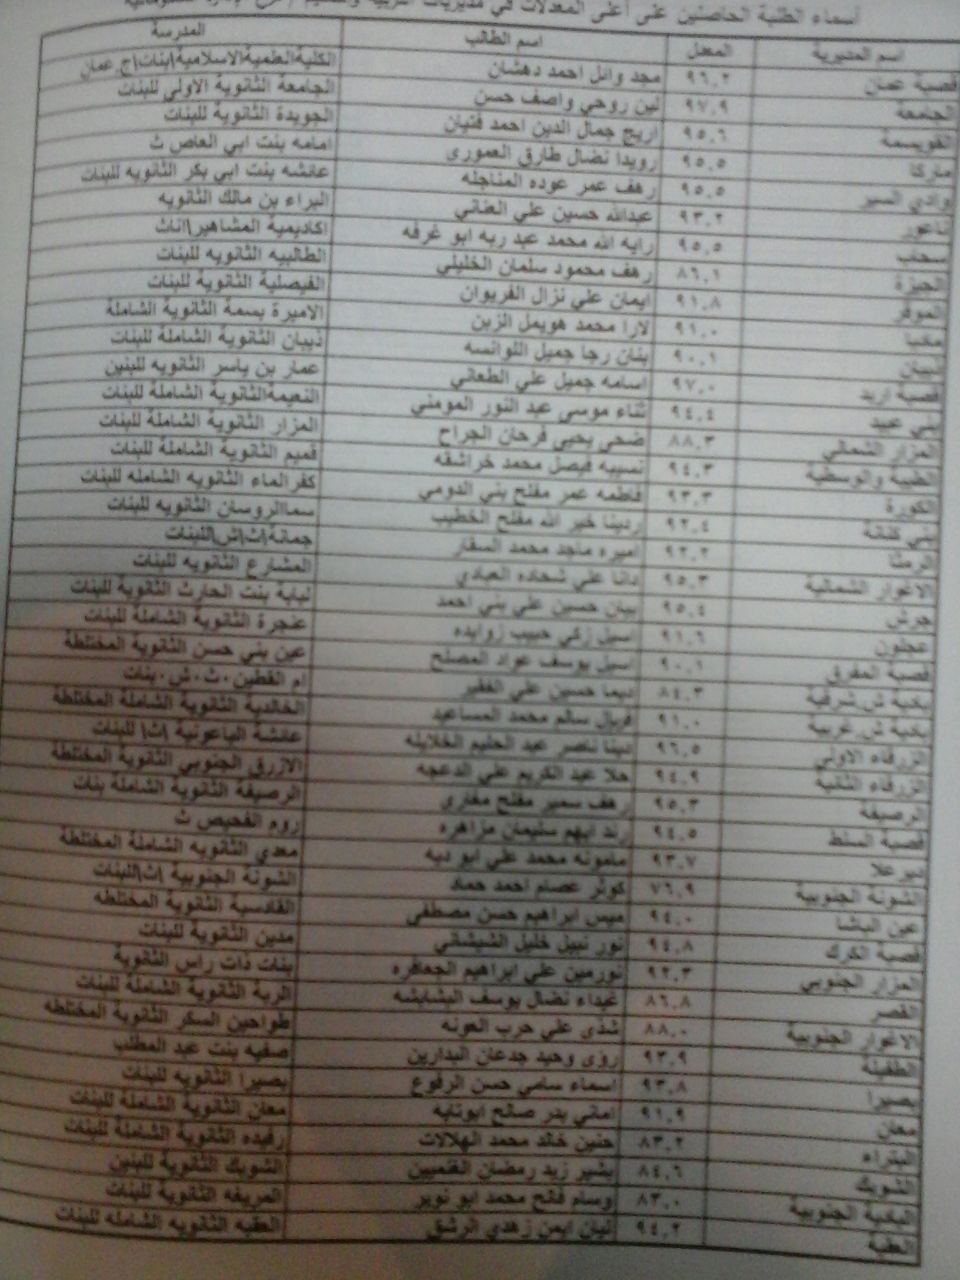 أسماء الطلبة الحاصلين على أعلى المعدلات في مديريات التربية والتعليم / فرع الإدارة المعلوماتية
اسم المديرية المعدل اسم الطالب المدرسة
قصبة عمان ٩٦.٢ مجد وائل احمد دهشان الكلية العلمية الاسلامية\بنات\ج عمان
الجامعة ٩٧.٩ لين روحي واصف حسن الجامعة الثانوية الاولى للبنات
القويسمة ٩٥.٦ اريج جمال الدين احمد فتيان الجويدة الثانوية للبنات
ماركا ٩٥.٥ رويدا نضال طارق العموري امامه بنت ابي العاص ث
وادي السير ٩٥.٥ رهف عمر عوده المناجله عائشه بنت ابي بكر الثانويه للبنات
ناعور ٩٣.٢ عبدالله حسين علي العناني البراء بن مالك الثانويه
سحاب ٩٥.٥ رايه الله محمد عبد ربه ابو غرفه اكاديمية المشاهير\اناث
الجيزة ٨٦.١ رهف محمود سلمان الخليلي الطالبيه الثانويه للبنات
الموقر ٩١.٨ ايمان علي نزال الفريوان الفيصلية الثانوية للبنات
مادبا ٩١.٠ لارا محمد هويمل الزبن الاميرة بسمة الثانوية الشاملة
ذيبان ٩٠.١ بنان رجا جميل اللوانسه ذيبان الثانوية الشاملة للبنات
قصبة اربد ٩٧.٠ اسامه جميل علي الطعاني عمار بن ياسر الثانويه للبنين
بني عبيد ٩٤.٤ ثناء موسى عبد النور المومني النعيمةالثانوية الشاملة للبنات
المزار الشمالي ٨٨.٣ ضحى يحيى فرحان الجراح المزار الثانوية الشاملة للبنات
الطيبة والوسطية ٩٤.٣ نسيبه فيصل محمد خراشقه قميم الثانوية الشاملة للبنات
الكورة ٩٣.٣ فاطمه عمر مفلح بني الدومي كفرالماء الثانويه الشامله للبنات
بني كنانة ٩٢.٤ ردينا خير الله مفلح الخطيب سماالروسان الثانويه للبنات
الرمثا ٩٢.٢ اميره ماجد محمد السقار جمانة\ث\ش\للبنات
الاغوار الشمالية ٩٥.٣ دانا علي شحاده العبادي المشارع الثانويه للبنات
جرش ٩٥.٤ بيان حسين علي بني احمد لبابة بنت الحارث الثانوية للبنات
عجلون ٩١.٦ اسيل زكي حبيب زوايده عنجرة الثانوية الشاملة للبنات
قصبة المفرق ٩٠.١ اسيل يوسف عواد المصلح عين بني حسن الثانوية المختلطة
بادية ش.شرقية ٨٤.٣ ديما حسين علي الفقير ام القطين.ث.ش.بنات
بادية ش.غربية ٩١.٠ فريال سالم محمد المساعيد الخالدية الثانوية الشاملة المختلطة
الزرقاء الاولى ٩٦.٥ دينا ناصر عبد الحليم الخلايله عائشة الباعونية \ث\ للبنات
الزرقاء الثانية ٩٤.٩ حلا عبد الكريم علي الدعجه الازرق الجنوبي الثانوية المختلطة
الرصيفة ٩٥.٣ رهف سمير مفلح مقاري الرصيفة الثانوية الشاملة بنات
قصبة السلط ٩٤.٥ رند ايهم سليمان مزاهره روم الفحيص ث
ديرعلا ٩٣.٧ مامونه محمد علي ابو ديه معدي الثانويه الشاملة المختلطة
الشونة الجنوبية ٧٦.٩ كوثر عصام احمد حماد الشونة الجنوبية \ث\للبنات
عين الباشا ٩٤.٠ ميس ابراهيم حسن مصطفى القادسية الثانوية المختلطه
قصبة الكرك ٩٤.٨ نور نبيل خليل الشيشاني مدين الثانوية للبنات
المزار الجنوبي ٩٢.٣ نورمين علي ابراهيم الجعافره بنات ذات راس الثانوية
القصر ٨٦.٨ غيداء نضال يوسف البشابشه الربة الثانوية الشاملة للبنات
الاغوار الجنوبية ٨٨.٠ شذى علي حرب العونه طواحين السكر الثانوية المختلطه
الطفيلة ٩٣.٩ رؤى وحيد جدعان البدارين صفيه بنت عبد المطلب
بصيرا ٩٣.٨ اسماء سامي حسن الرفوع بصيرا الثانويه للبنات
معان ٩١.٩ اماني بدر صالح ابونايه معان الثانوية الشاملة للبنات
البتراء ٨٣.٢ حنين خالد محمد الهلالات رفيده الثانوية للبنات
الشوبك ٨٤.٦ بشير زيد رمضان الغنميين الشوبك الثانوية للبنين
البادية الجنوبية ٨٣.٠ وسام فالح محمد ابو نوير المريغه الثانوية للبنات
العقبة ٩٤.٢ ليان ايمن زهدي الرشق العقبه الثانويه الشامله للبنات